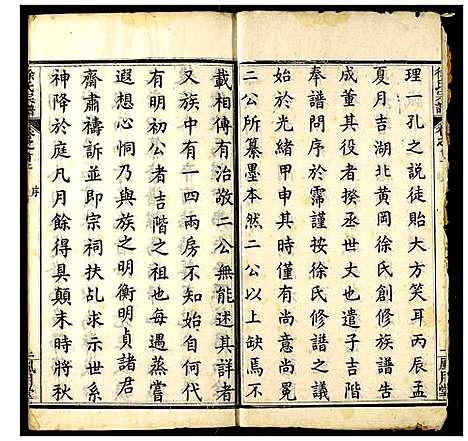 理一孔之說徒貽大方笑耳丙辰孟
夏月吉湖北黃岡徐氏創修族譜告
成董其役者揆丞也遣子吉階
奉譜問序於霈謹按徐氏修譜之議
始於光緒甲申其時僅有尚意尚冕
二公所纂墨本然二公以上缺焉不
載相傳有治敬二公無能述其詳者
又族中有一四兩房不知始自何代
有明初公者吉階之祖也每遇蒸嘗
遐想心恫乃與族之明衡明貞諸君
齋肅禱訴並即宗祠扶乩求示世系
神降於庭凡月餘得具顛末時將秋
徐氏宗譜
序
風月堂